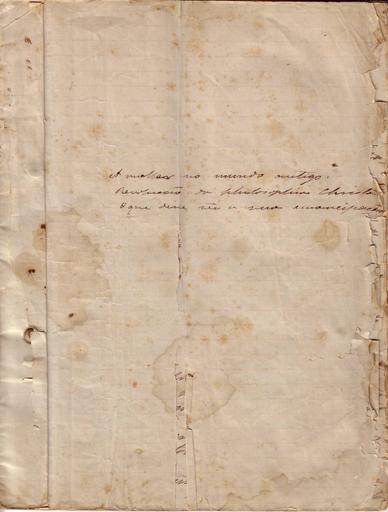 A mulher no mundo antigo.
Revolução da philosophia Christã
O que deve ser a sua emancipação